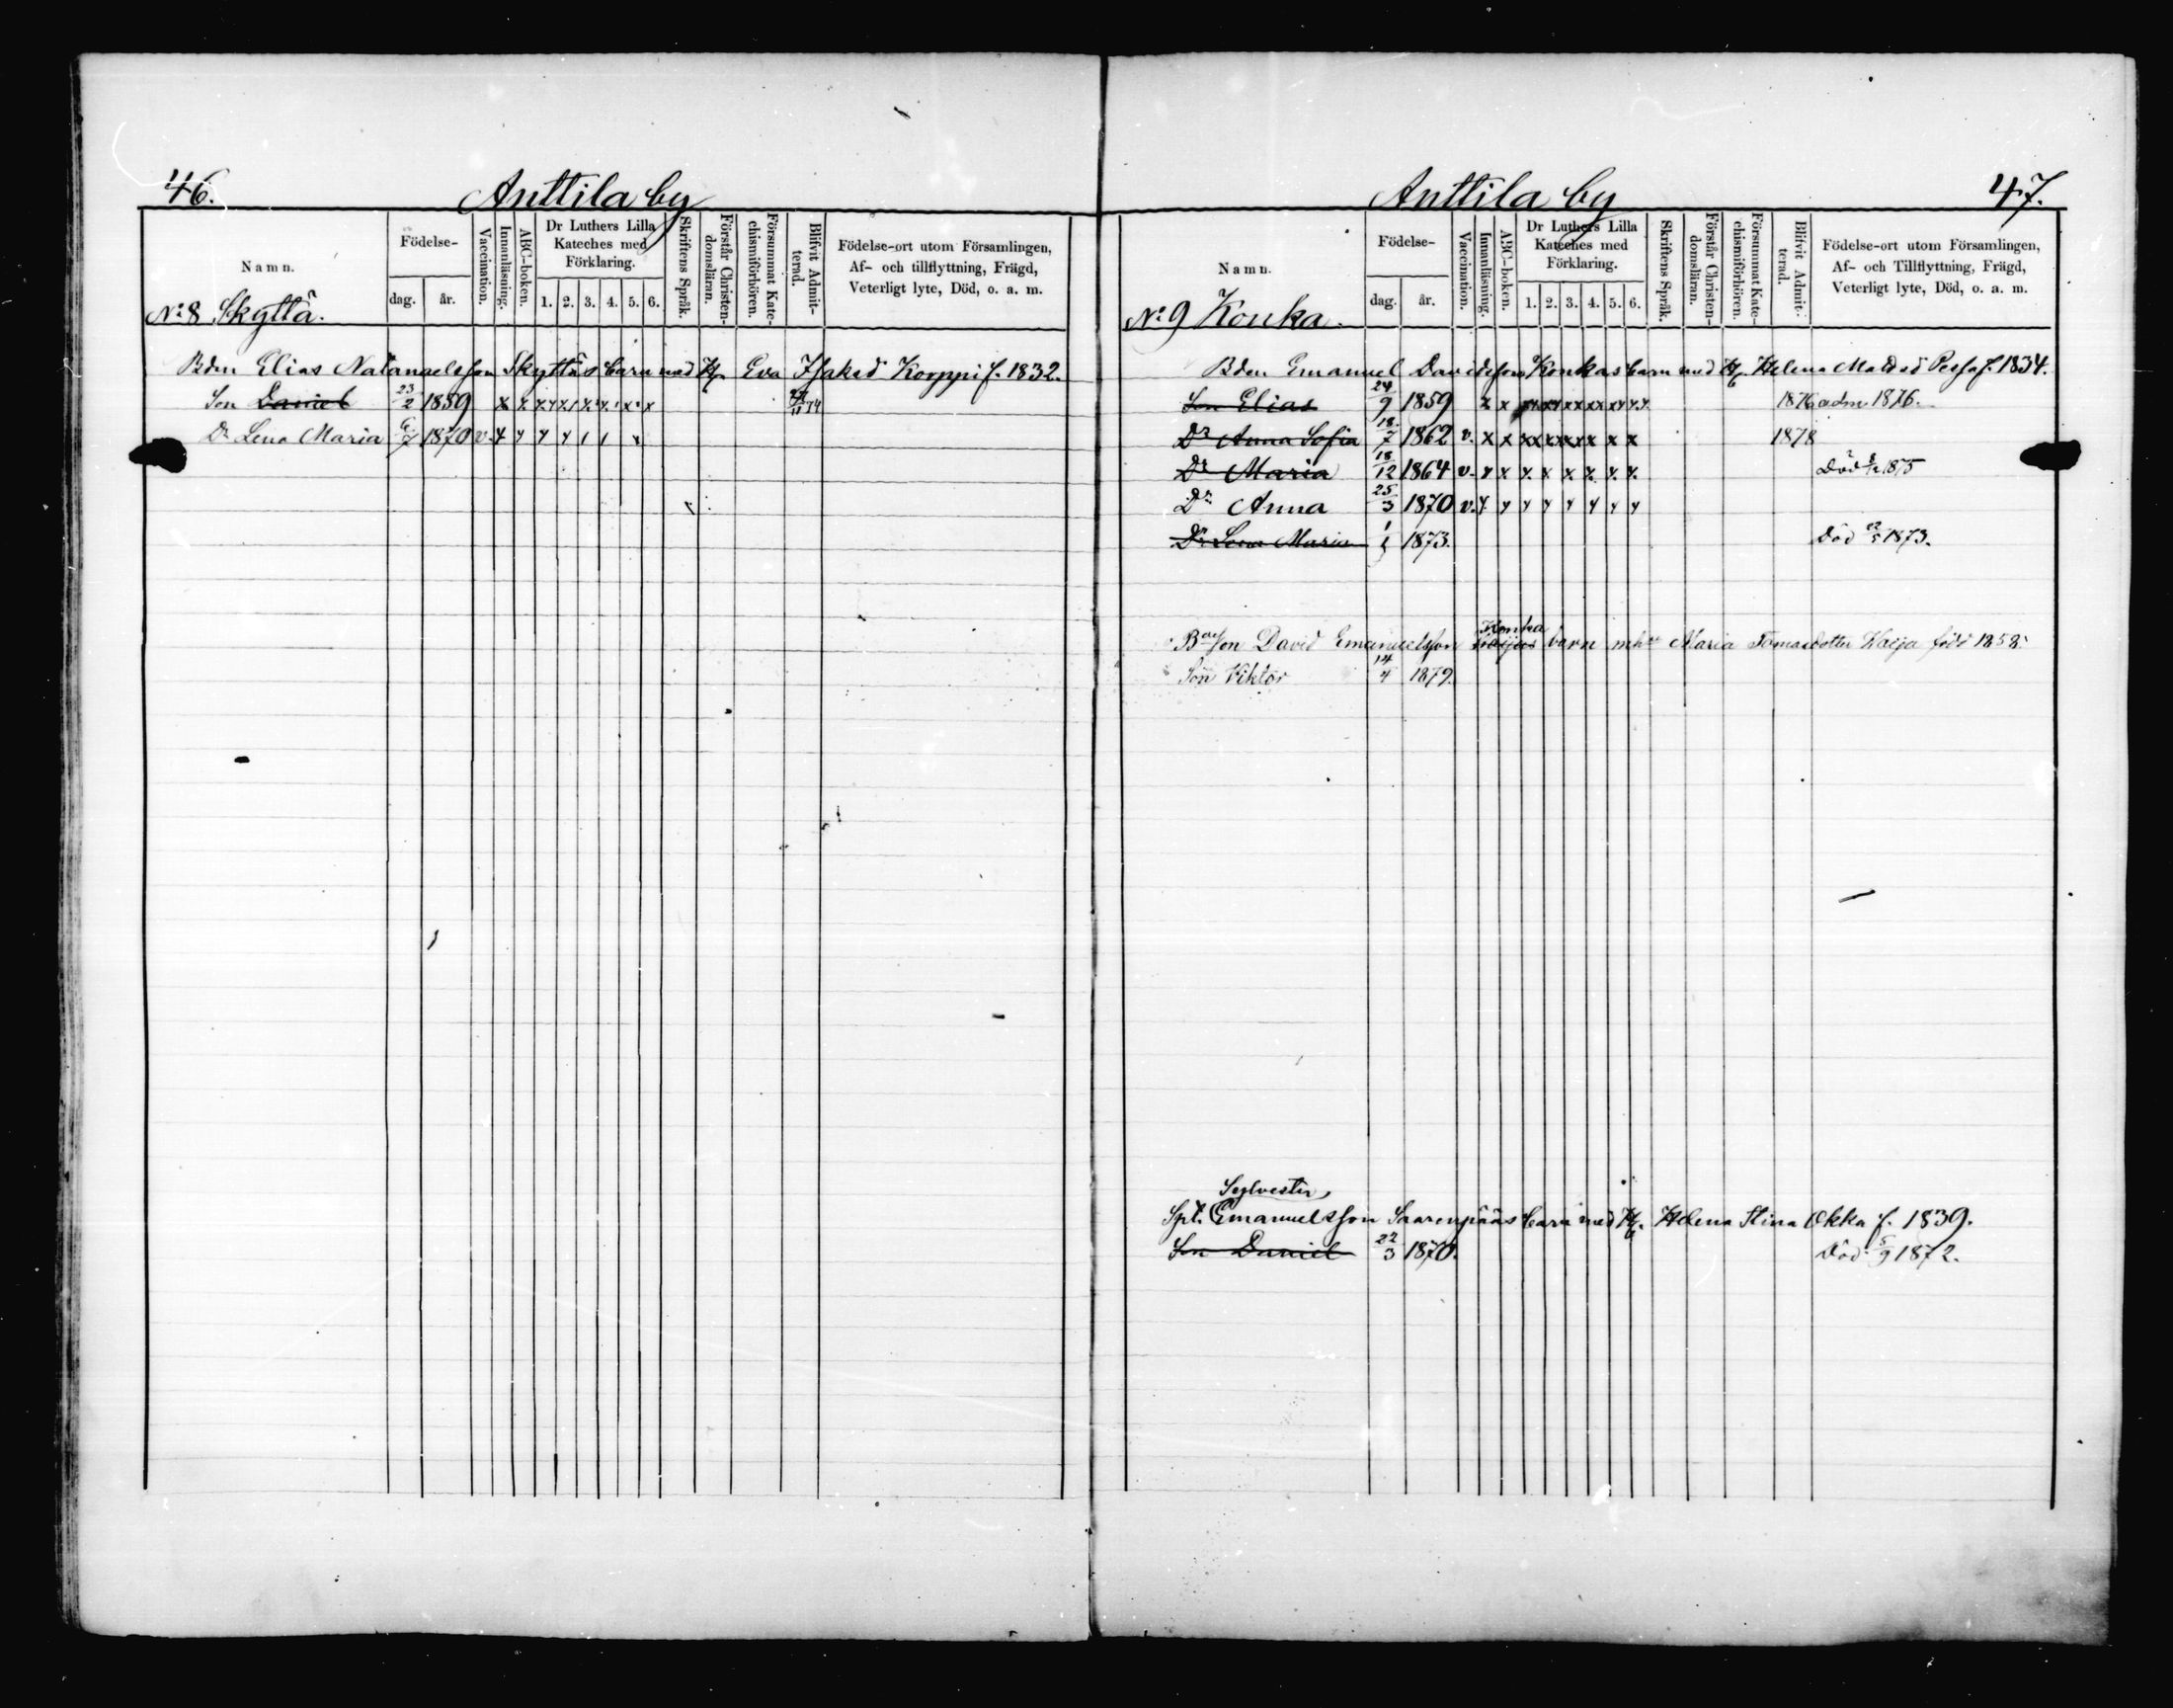 46.
Anttila by
Namn.
Födelse-
dag.
år.
Vaccination.
Innanläsning.
ABC-boken.
Dr Luthers Lilla
Kateches med
Förklaring.
1. 2. 3. 4. 5. 6.
Skriftens Språk.
Förstår Christen-
domsläran.
Försummat Kate-
chismiförhören.
Blifvit Admit-
terad.
Födelse-ort utom Församlingen,
Af- och tillflyttning, Frägd,
Veterligt lyte, Död, o. a. m.
No: 8 Skyttä.
Bden Elias Natanaelsson Skyttäs barn med H. Eva Isaksd Korppi f. 1832.
Son Daniel 23/2 1859 x x x x x 1 x x x x
Dr Lena Maria 1870 v. x x x x 1 1 x
Anttila by
47.
Namn.
Födelse-
dag.
år.
Vaccination.
Innanläsning.
ABC-boken.
Dr Luthers Lilla
Kateches med
Förklaring.
1. 2. 3. 4. 5. 6.
Skriftens Språk.
Förstår Christen-
domsläran.
Försummat Kate-
chismiförhören.
Blifvit Admit-
terad.
Födelse-ort utom Församlingen,
Af- och Tillflyttning, Frägd,
Veterligt lyte, Död, o. a. m.
No: 9 Konka.
Bden Emanuel Davidsson Konkas barn med H. Helena f. 1834.
Son Elias 24/9 1859 x x xx xx xx xx xx xx 1876 adm 1876.
Dr Anna Sofia 18/7 1862 v. x x xx xx xx x x x 1878
Dr Maria 18/12 1864 v. x x x x x x x x Död 1875
Dr Anna 25/3 1870 v. x x x x x x x x
Dr Lena Maria 1873. Död 1873.
Konka
Bdeson David Emanuelsson barn mh Maria Tomasdotter Haija född 1858.
Son Viktor 14/4 1879.
Sylvester
Spt. Emanuelsson Saarenpääs barn med H. Helena Stina Okka f. 1839.
Son Daniel 22/3 1870. Död 5/9 1872.